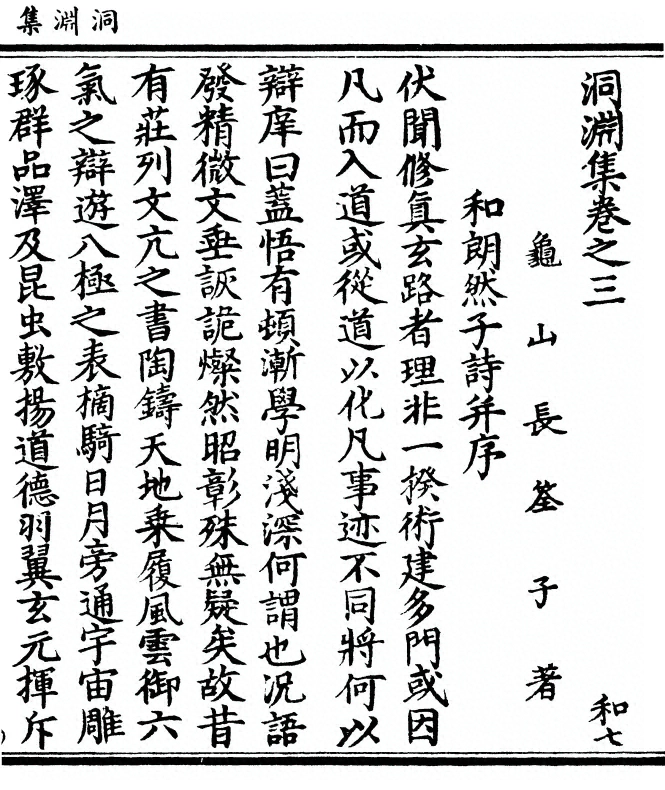 洞淵集
洞淵集卷之三
和七
龜山長筌子著
和朗然子詩并序
伏聞修真玄路者理非一揆術建多門或因
凡而入道或從道以化凡事迹不同將何以
辯厗曰蓋悟有頓漸學明淺深何謂也況語
發精微文垂詼詭燦然昭彰殊無疑矣故昔
有莊列文亢之書陶鑄天地乗履風雲御六
氣之辯遊八極之表摛騎日月旁通宇宙雕
琢群品澤及昆虫敷揚道德羽翼玄元揮斥